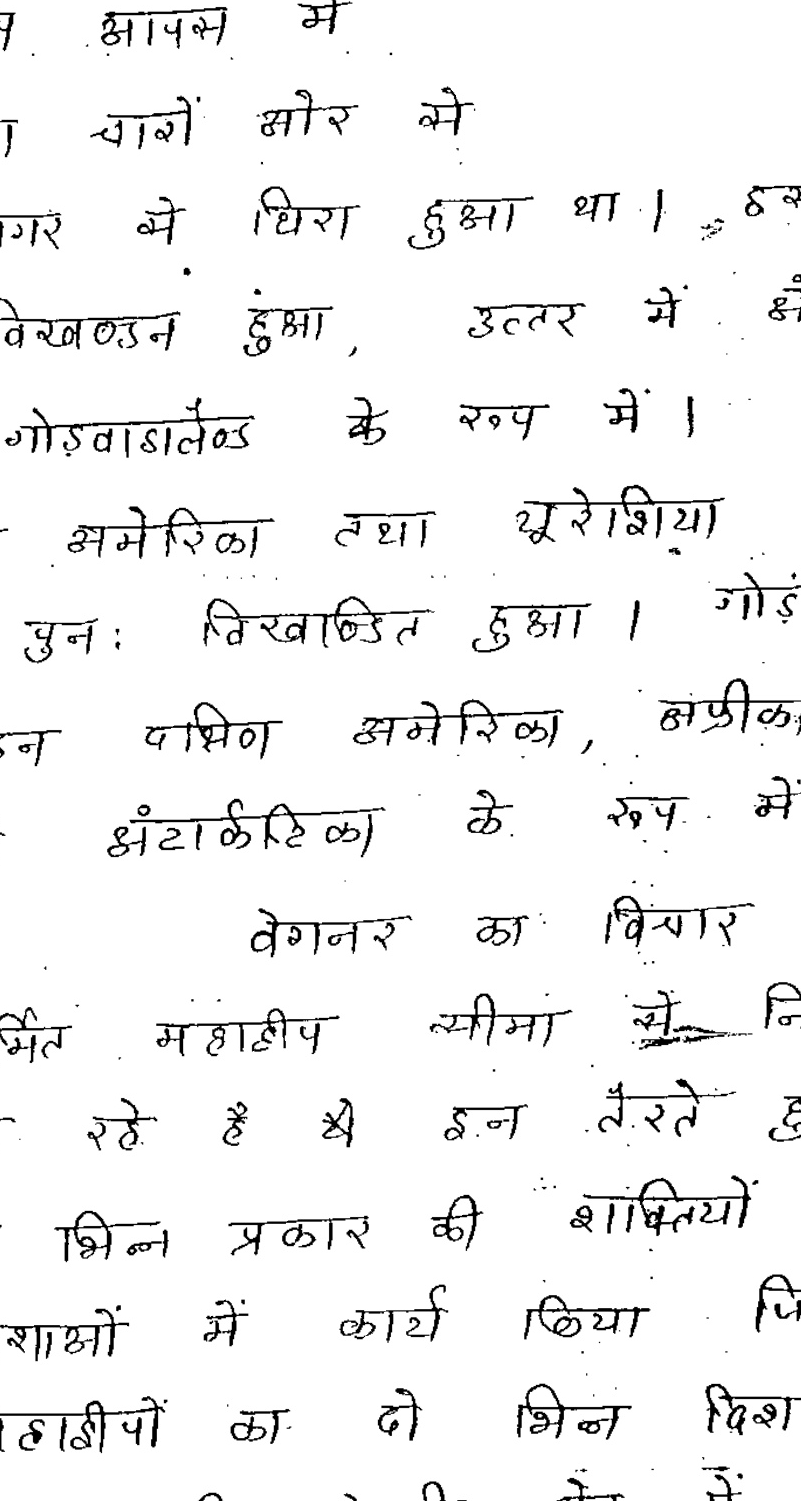 आपस में
चारों ओर से
गर से घिरा हुआ था । इस
विखण्डन हुआ, उत्तर में
गोडवाडालैण्ड के रूप में ।
अमेरिका तथा यूरेशिया
पुनः विखण्डित हुआ । गोडं
न दक्षिण अमेरिका, अफ्रीका
अंटार्कटिका के रूप में
वेगनर का विचार
र्मित महाद्वीप सीमा से नि
रहे है इन तैरते हु
भिन्न प्रकार की शक्तियों
शाओं में कार्य किया जि
हाद्वीपों का दो भिन्न दिशा